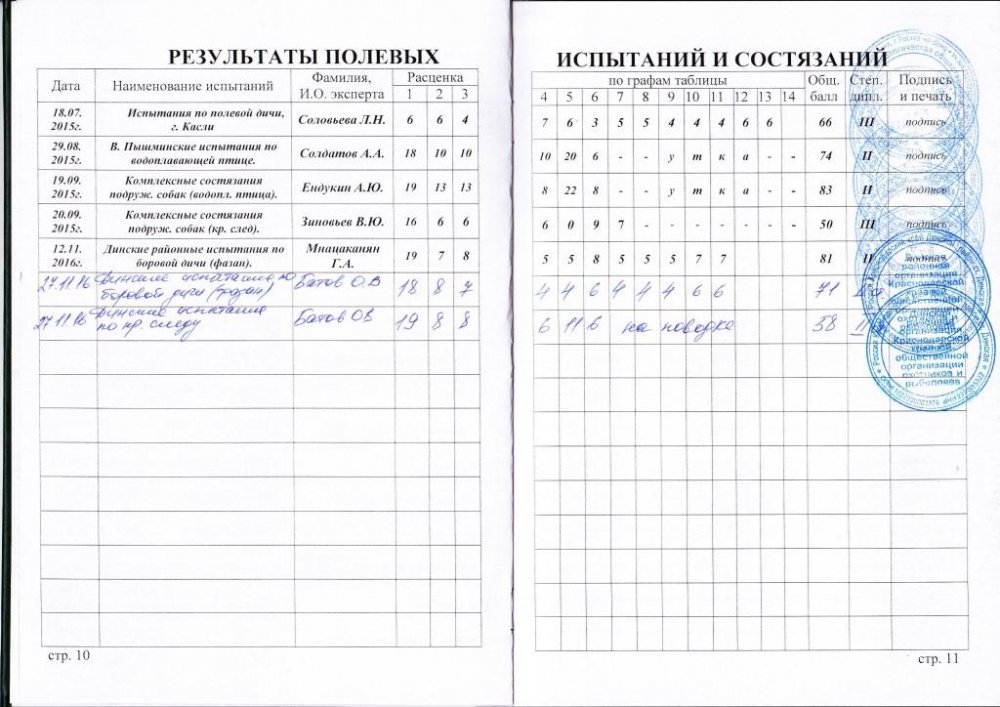 РЕЗУЛЬТАТЫ ПОЛЕВЫХ ИСПЫТАНИЙ И СОСТЯЗАНИЙ
Дата Наименование испытаний Фамилия, И.О. эксперта Расценка по графам таблицы Общ. балл Степ. дипл. Подпись и печать
1 2 3 4 5 6 7 8 9 10 11 12 13 14
18.07. Испытания по полевой дичи, Соловьева Л.Н. 6 6 4 7 6 3 5 5 4 4 4 6 6 66 III подпись
2015г. г. Касли
29.08. В. Пышминские испытания по Солдатов А.А. 18 10 10 10 20 6 - - у т к а - - 74 II подпись
2015г. водоплавающей птице.
19.09. Комплексные состязания Ендукин А.Ю. 19 13 13 8 22 8 - - у т к а - - 83 II подпись
2015г. подруж. собак (водопл. птица).
20.09. Комплексные состязания Зиновьев В.Ю. 16 6 6 6 0 9 7 - - - - - - 50 III подпись
2015г. подруж. собак (кр. след).
12.11. Динские районные испытания по Мнацаканян 19 7 8 5 5 8 5 5 7 7 81 II подпись
2016г. боровой дичи (фазан). Г.А.
27.11.16 Динские испытания по Батов О.В 18 8 7 4 4 6 4 4 4 6 6 71
боровой дичи (фазан)
27.11.16 Динские испытания Батов ОВ 19 8 8 6 11 6 на поводке 58
по кр. следу
районная
организация
Краснодарской
краевой
общественной
организации
охотников и
Краснодарской
краевой
общественной
организации
охотников и
рыболовов
стр. 10
стр. 11